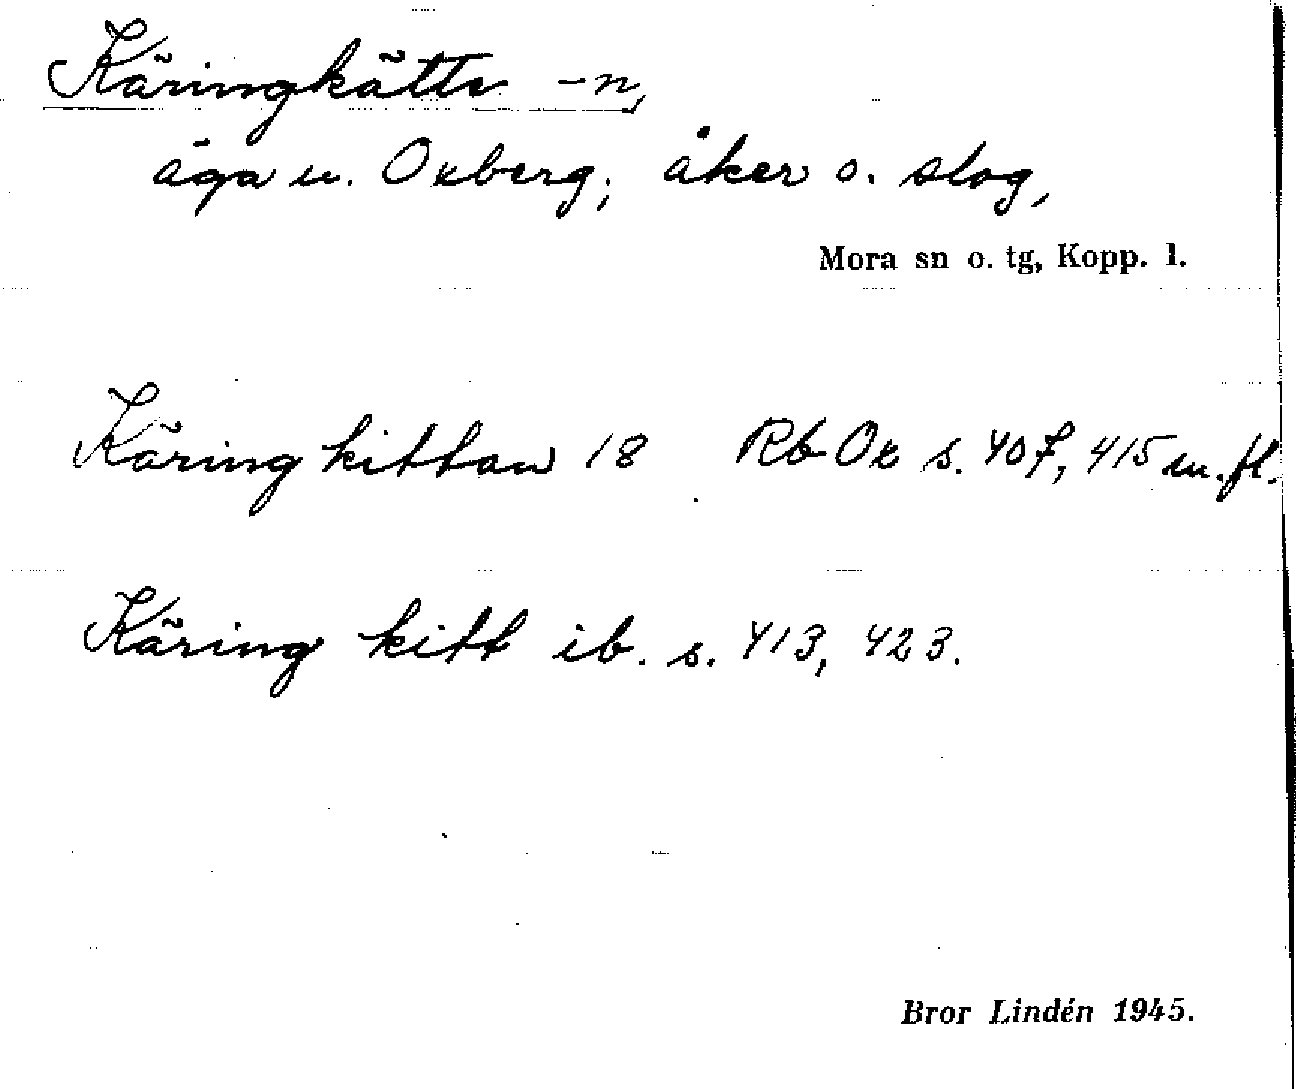 Käringkätte -n,
äga u. Oxberg; åker o. slog,
Mora sn o. tg, Kopp. l.
Käring kittan 18 Rb Ox s. 407, 415 m. fl.
Käring kitt ib. s. 413, 423.
Bror Lindén 1945.